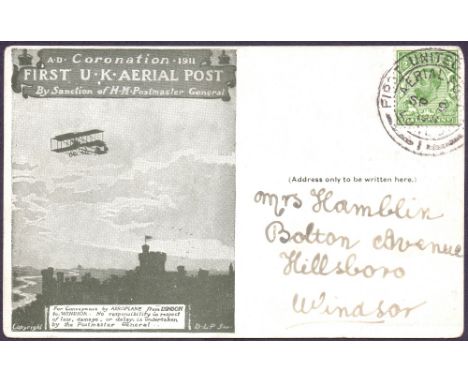 A·D· Coronation · 1911
FIRST U·K·AERIAL POST
By Sanction of H·M·Postmaster General
FIRST UNITED
AERIAL
1
(Address only to be written here.)
Mrs Hamblin
Bolton Avenue
Hillsboro
Windsor
For Conveyance by AEROPLANE from LONDON
to WINDSOR. No responsibility in respect
of loss, damage, or delay, is undertaken
by the Postmaster General
Copyright